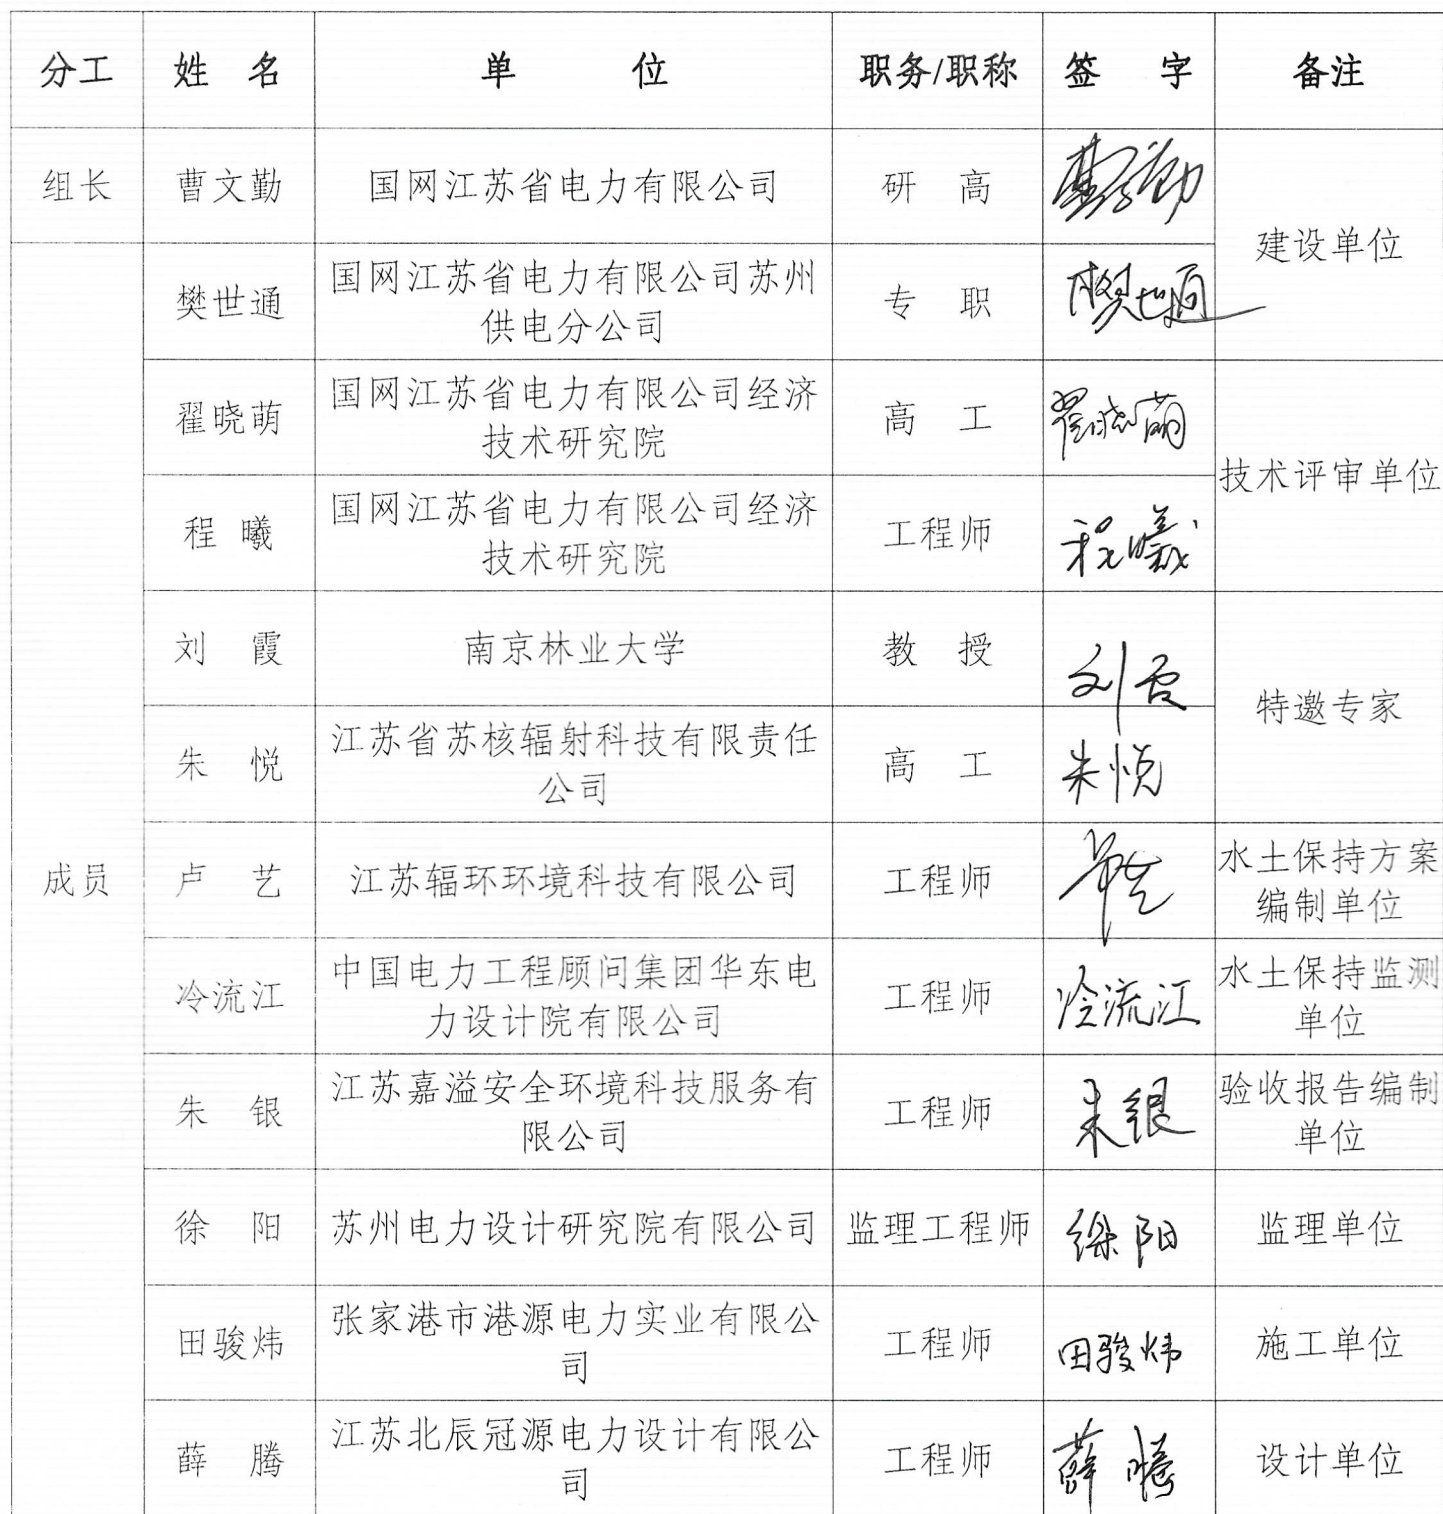 分工 姓 名 单 位 职务/职称 签 字 备注
组长 曹文勤 国网江苏省电力有限公司 研 高 曹文勤
建设单位
樊世通 国网江苏省电力有限公司苏州
供电分公司 专 职 樊世通
翟晓萌 国网江苏省电力有限公司经济
技术研究院 高 工 翟晓萌
技术评审单位
程 曦 国网江苏省电力有限公司经济
技术研究院 工程师 程曦
刘 霞 南京林业大学 教 授 刘霞
特邀专家
朱 悦 江苏省苏核辐射科技有限责任
公司 高 工 朱悦
成员 卢 艺 江苏辐环环境科技有限公司 工程师 卢艺 水土保持方案
编制单位
冷流江 中国电力工程顾问集团华东电
力设计院有限公司 工程师 冷流江 水土保持监测
单位
朱 银 江苏嘉溢安全环境科技服务有
限公司 工程师 朱银 验收报告编制
单位
徐 阳 苏州电力设计研究院有限公司 监理工程师 徐阳 监理单位
田骏炜 张家港市港源电力实业有限公
司 工程师 田骏炜 施工单位
薛 腾 江苏北辰冠源电力设计有限公
司 工程师 薛腾 设计单位